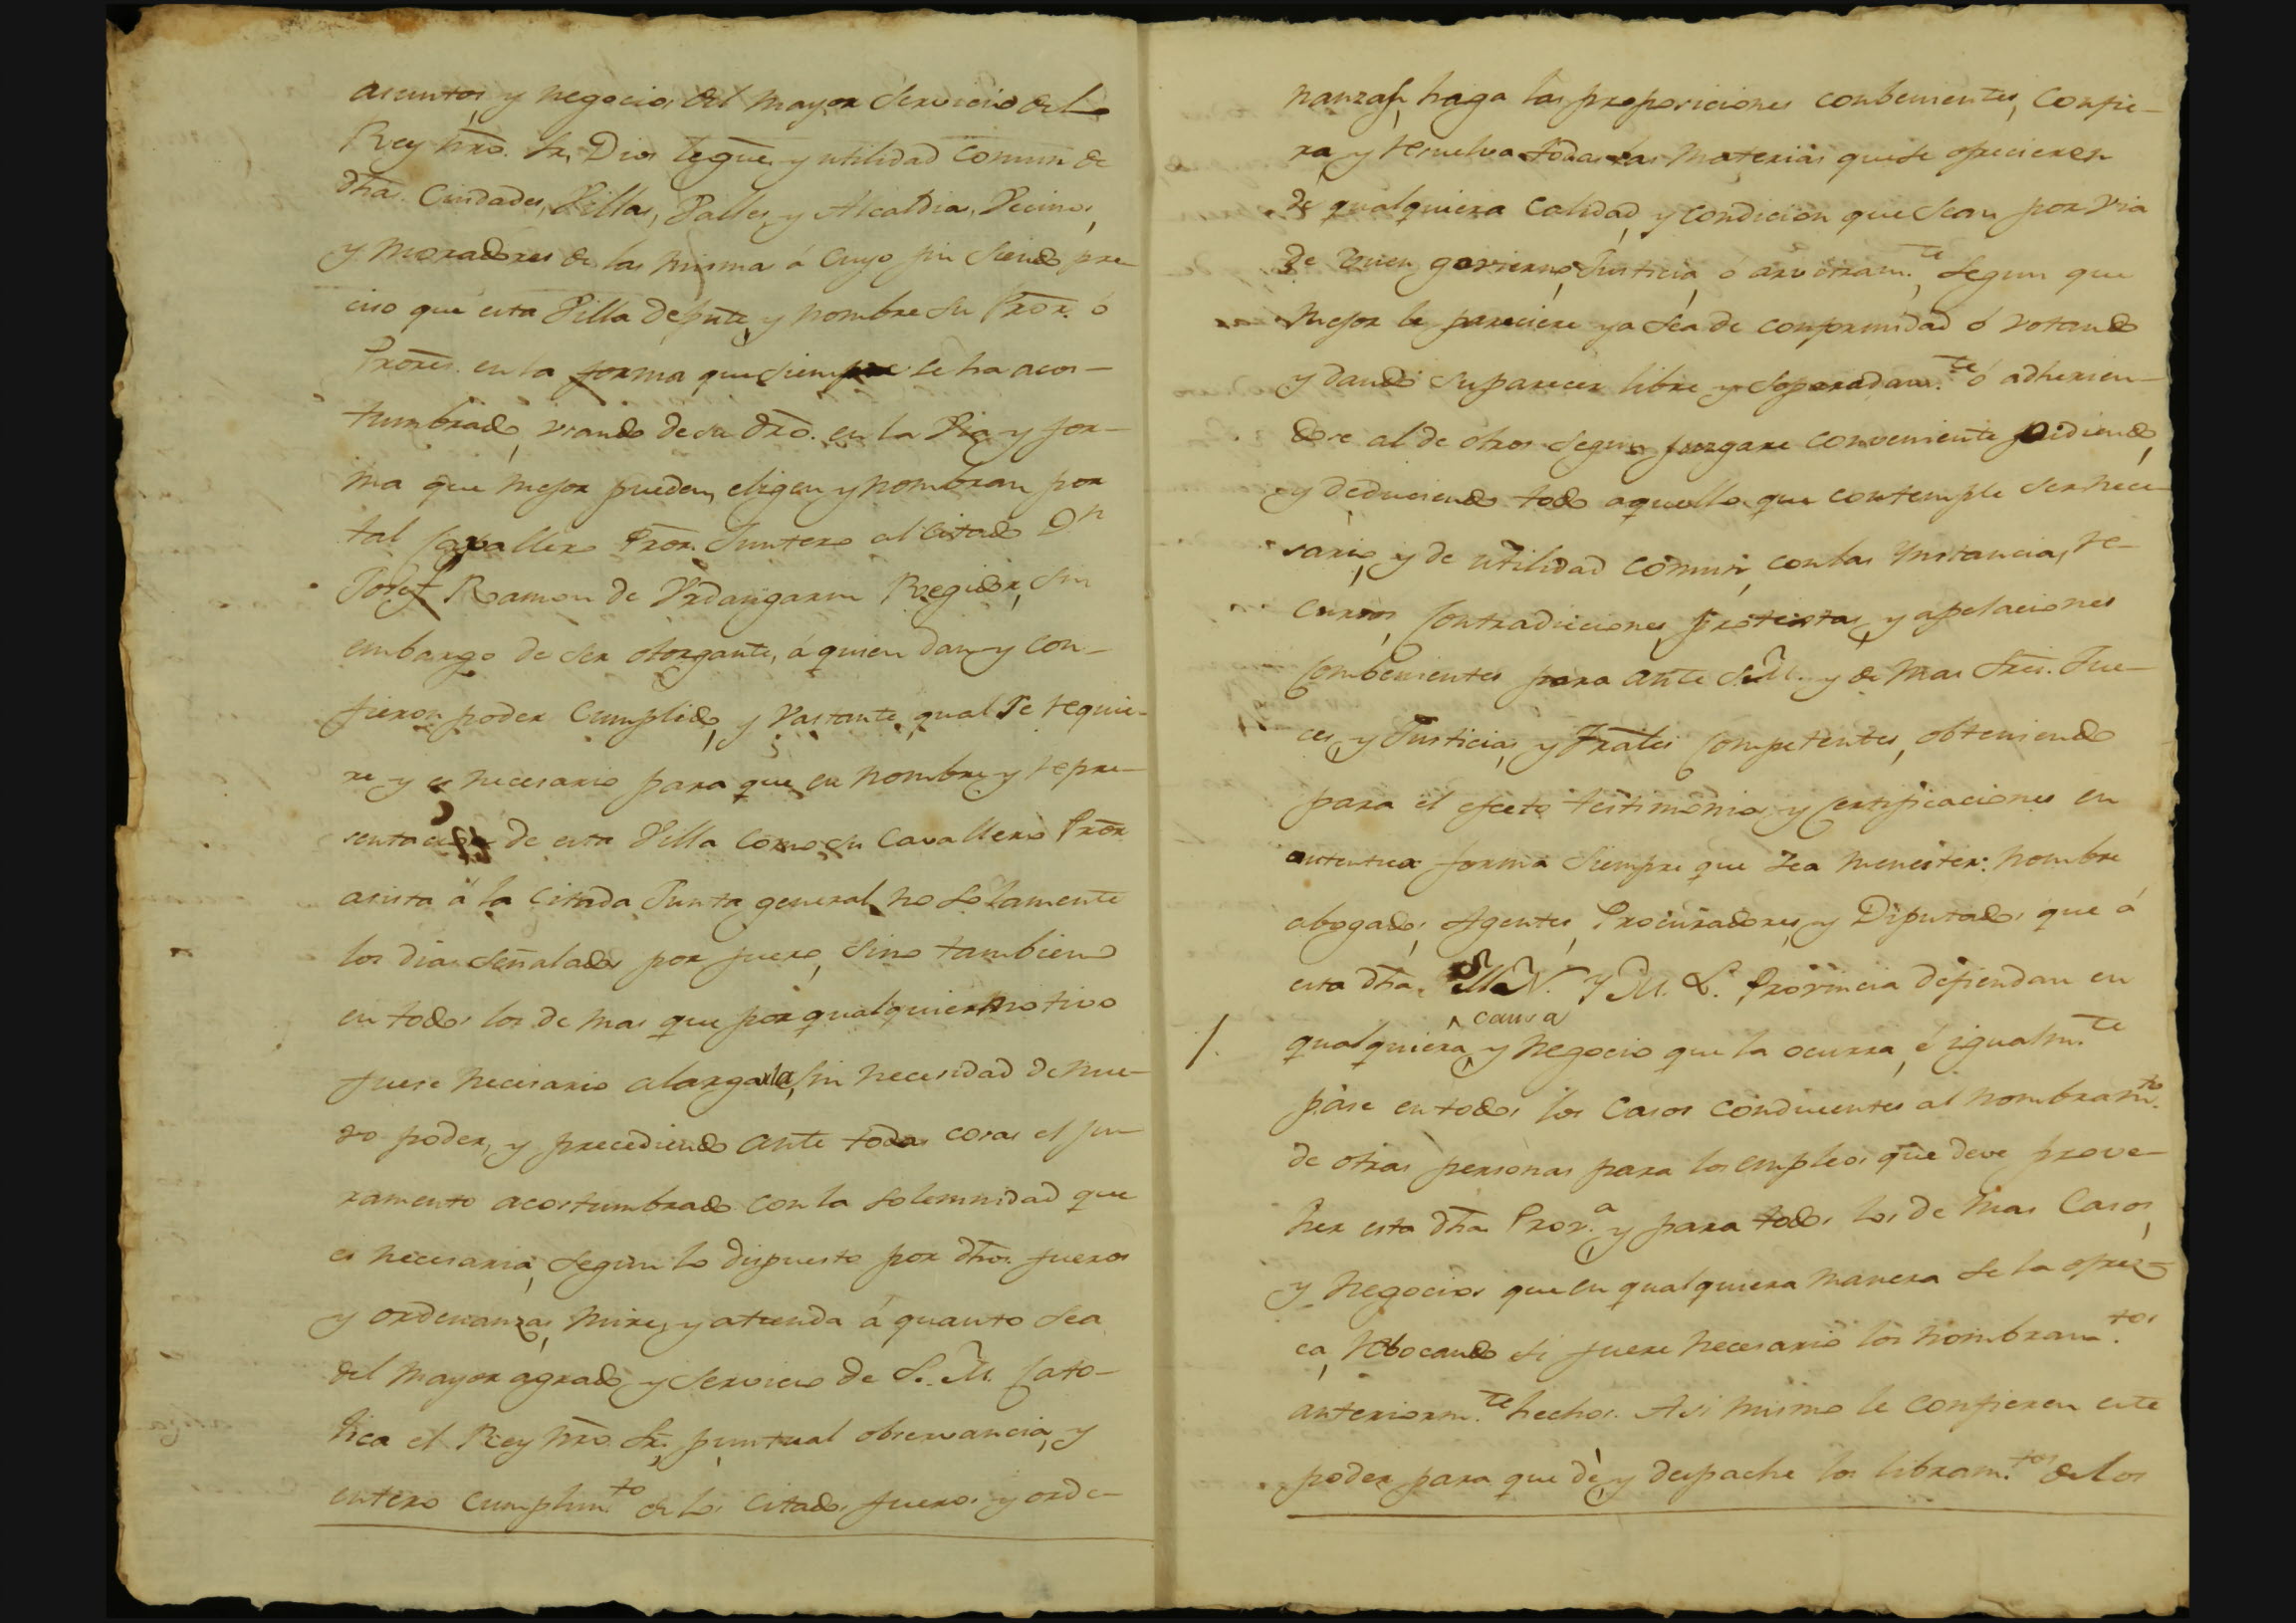 asuntos, y negocios del mayor servicio del
Rey nro. Sr. Dios legue, y utilidad comun de
dha. Ciudades, Villas, Valles, y Alcaldia, Vecinos,
y moradores de las mismas á cuyo fin siendo pre-
ciso que esta Villa depute, y nombre su Pror. ó
Prores. en la forma que siempre se ha acos-
tumbrado, usando de su dro. en la Via y for-
ma que mejor pueden, eligen y nombran por
tal Cavallero Pror. Juntero al citado Dn
Josef Ramon de Urdangarin Regidor, sin
embargo de ser otorgante, á quien dan y con-
fieron poder cumplido, y vastante qual se requie-
re y es necesario para que en nombre y repre-
sentacion de esta Villa como su Cavallero Pror
asista á la citada Junta general no solamente
los dias señalados por fuero, sino tambien
en todos los de mas que por qualquier motivo
fuese necesario alargarla, sin necesidad de nue-
vo poder, y precediendo ante todas cosas el ju-
ramento acostumbrado con la solemnidad que
es necesaria, segun lo dispuesto por dhos. fueros
y ordenanzas, mire, y atienda á quanto sea
del mayor agrado, y servicio de S. M. Cato-
lica el Rey nro. Sr., puntual observancia, y
entero cumplim.to de los citados fueros y orde-
nanzas, haga las proposiciones combenientes, Confie-
ra, y resuelva todas las materias que se ofrecieren
de qualquiera calidad, y condicion que sean por via
de buen govierno, Justicia, ó arvitram.te, segun que
mejor le pareciere ya sea de conformidad ó votando
y dando su parecer libre y separadam.te ó adherien-
dose al de otros segun juzgare conveniente pidiendo,
y deduciendo todo aquello que contemple ser nece-
sario, y de utilidad comun, con las Ynstancias, re-
cursos, Contradiciones, protestas, y apelaciones
Combenientes para ante S. M. y de mas Sres. Jue-
ces, y Justicias, y Trales Competentes, obteniendo
para el efecto testimonios, y Certificaciones en
autentica forma siempre que sea menester: nombre
abogados, Agentes, Procuradores, y Diputados que á
esta dha. M. N. Y M. L. Provincia defiendan en
/. qualquiera ^causa y negocio que la ocurra, é igualm.te
pase en todos los casos conducentes al nombram.to
de otras personas para los empleos que deve prove-
her esta dha Prov.a y para todos los de mas Casos,
y negocios que en qualquiera manera se la ofrez-
ca, rebocando si fuere necesario los nombram.tos
anteriorm.te hechos. Asi mismo le confieren este
poder para que dè, y despache los libram.tos de los